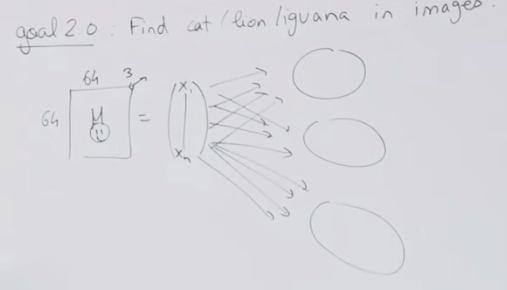 goal 2.0 : Find cat / lion / iguana in images.
64 3
64 = x₁
xₙ